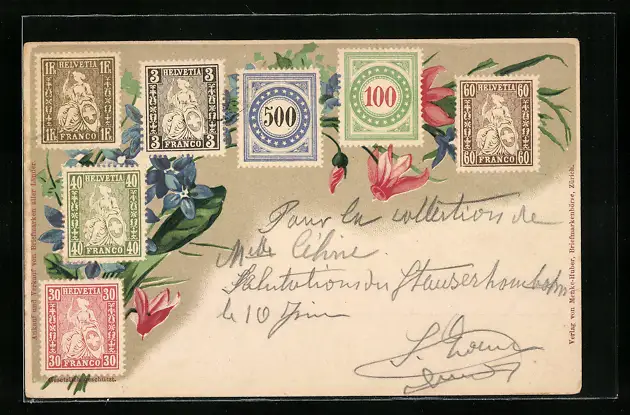 1F. HELVETIA 1F.
1F. FRANCO 1F.
3 HELVETIA 3
3 FRANCO 3
500
100
60 HELVETIA 60
60 FRANCO 60
40 HELVETIA 40
40 FRANCO 40
30 HELVETIA 30
30 FRANCO 30
Pour la collection de
Melle Céline
Salutations du Stanserhornbahn
le 10 Juin
Ankauf und Verkauf von Briefmarken aller Länder.
Verlag von Menke-Huber, Briefmarkenbörse, Zürich.
Gesetzlich geschützt.